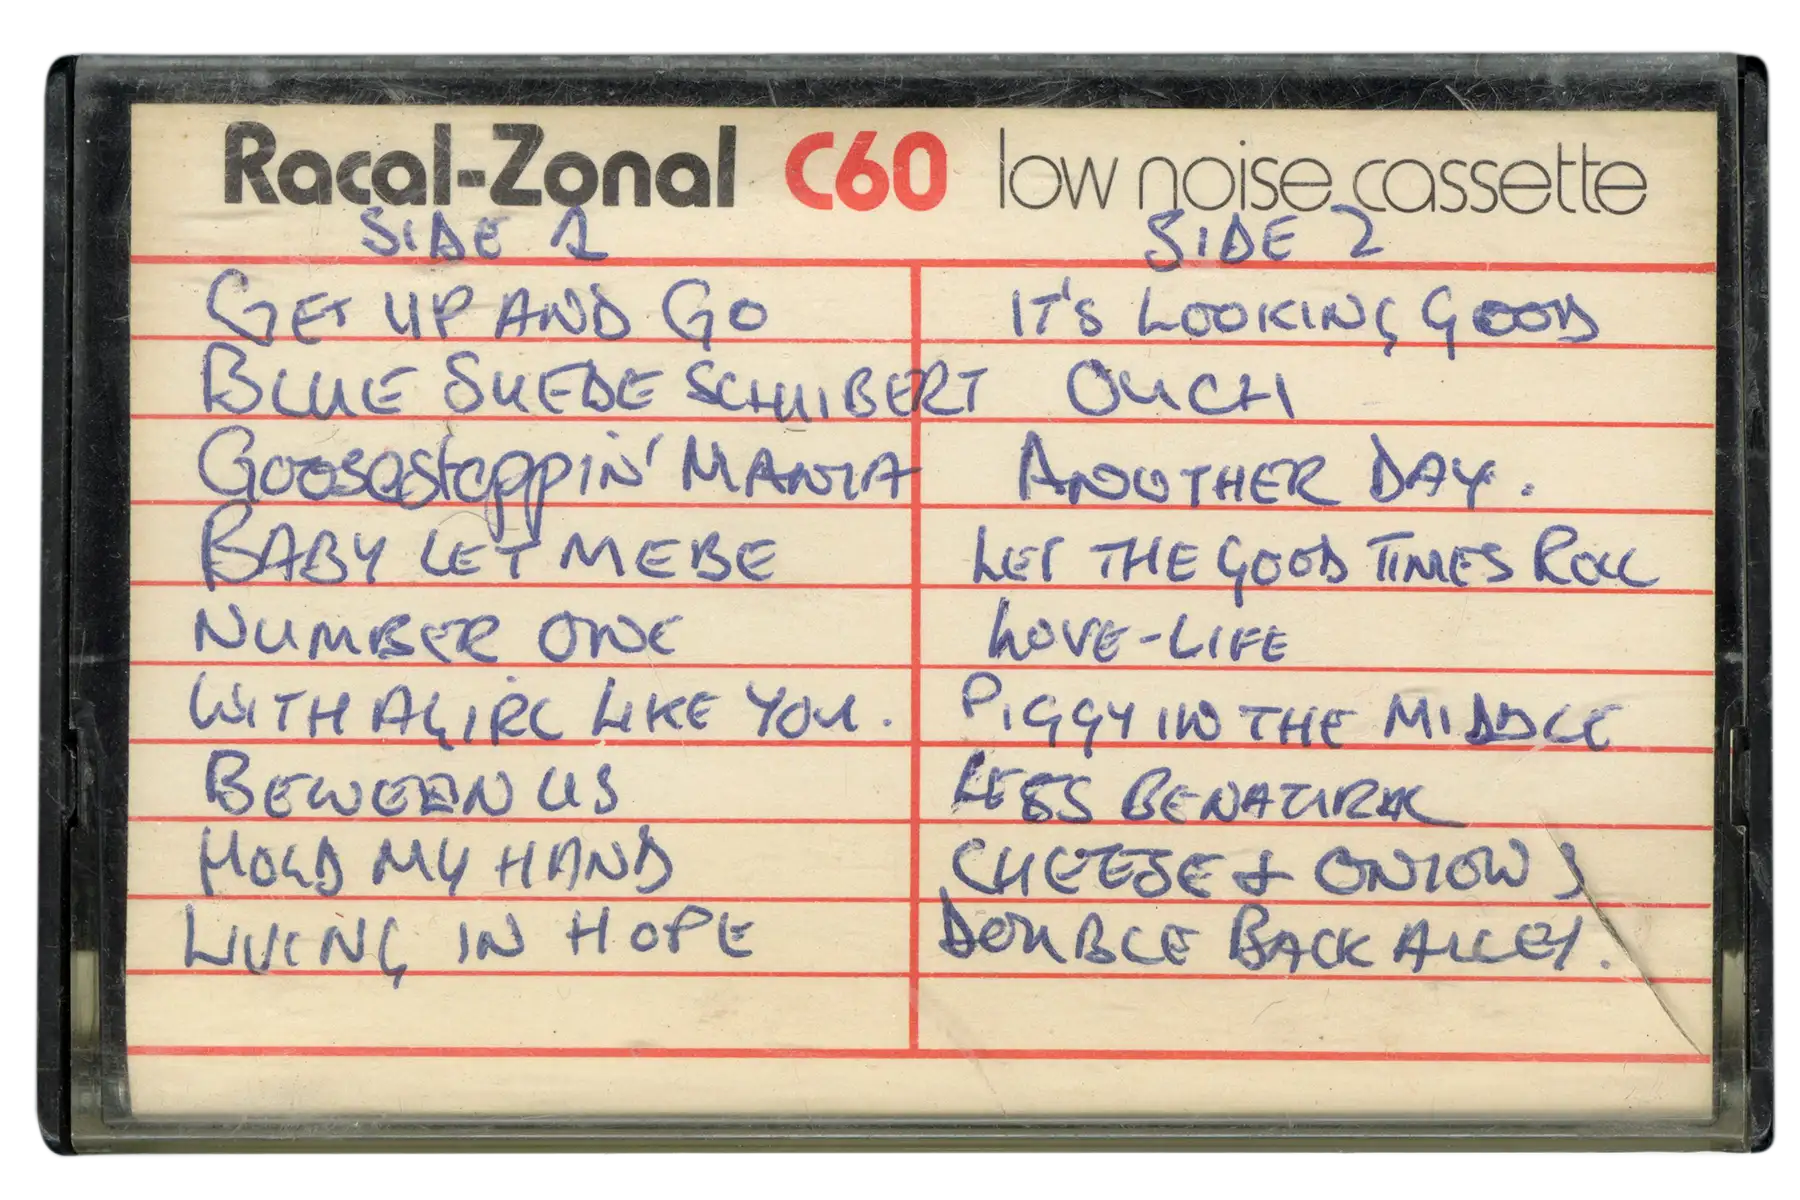 Racal-Zonal C60 low noise cassette
SIDE 1
GET UP AND GO
BLUE SUEDE SCHUIBERT
Goosesteppin' MANIA
BABY LET ME BE
NUMBER ONE
WITH A GIRL LIKE YOU.
BEWEEN US
HOLD MY HAND
LIVING IN HOPE
SIDE 2
IT'S LOOKING GOOD
OUCH
ANOTHER DAY.
LET THE GOOD TIMES ROLL
LOVE-LIFE
PIGGY IN THE MIDDLE
LETS BE NATURAL
CHEESE & ONIONS
DOUBLE BACK ALLEY.